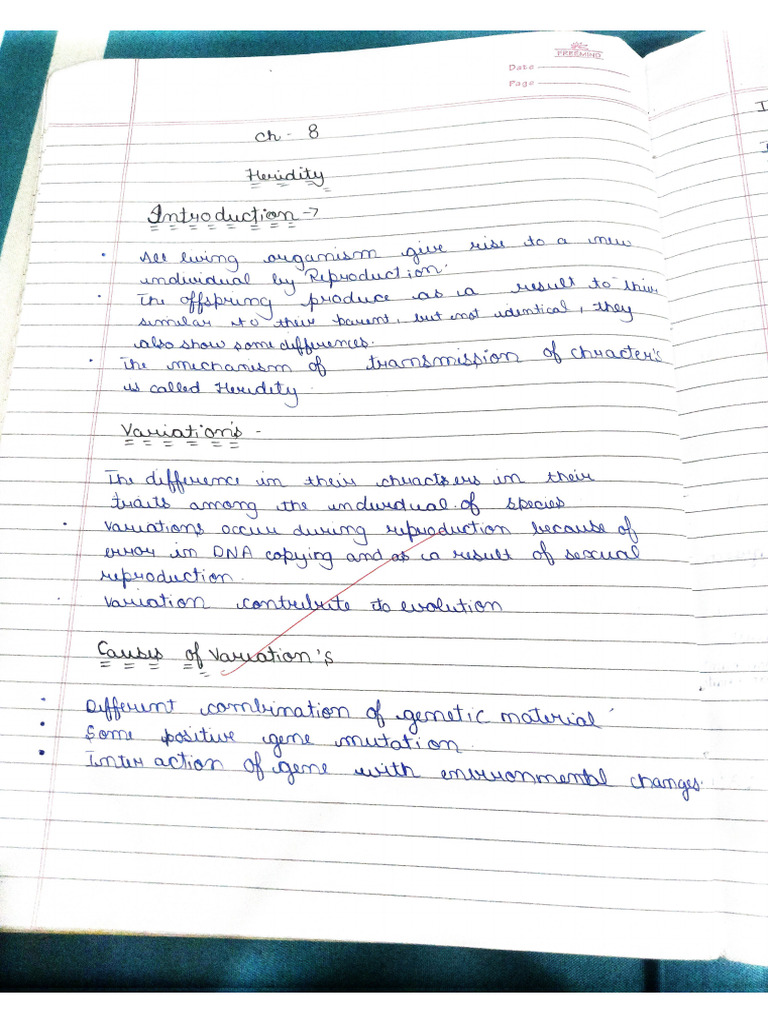 FREEMIND
Date
Page
Ch - 8
Heridity
Introduction →
All living organism give rise to a new
individual by Reproduction.
The offspring produce as a result to
similar to their parent, but not identical, they
also show some differences.
The mechanism of transmission of chracter's
is called Heridity.
Variation's -
The difference in their chracters in their
traits among the undividual of species
Variations occur during reproduction because of
error in DNA copying and as a result of sexual
reproduction.
Variation contribute to evolution
Causes of Variation's
Different combination of genetic material
Some positive gene mutation.
Inter action of gene with environmental changes.